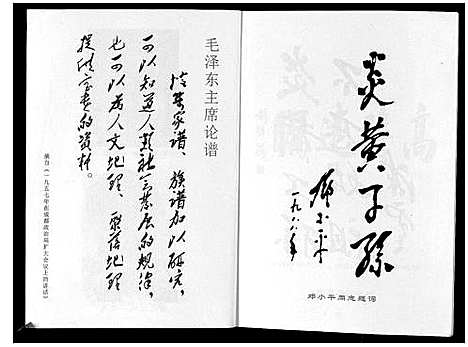 炎黄子孙
邓小平
一九八八年
邓小平同志题词
毛泽东主席论谱
收集家谱、族谱加以研究，
可以知道人类社会发展的规律，
也可以为人文地理、聚落地理
提供宝贵的资料。
摘自《一九五七年在成都政治局扩大会议上的讲话》